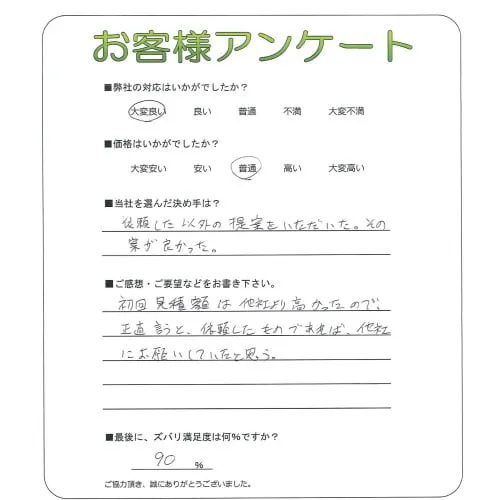 お客様アンケート
■弊社の対応はいかがでしたか？
大変良い 良い 普通 不満 大変不満
■価格はいかがでしたか？
大変安い 安い 普通 高い 大変高い
■当社を選んだ決め手は？
依頼した以外の提案をいただいた。その
案が良かった。
■ご感想・ご要望などをお書き下さい。
初回見積額は他社より高かったので、
正直言うと、依頼したものであれば、他社
にお願いしていたと思う。
■最後に、ズバリ満足度は何%ですか？
90 %
ご協力頂き、誠にありがとうございました。